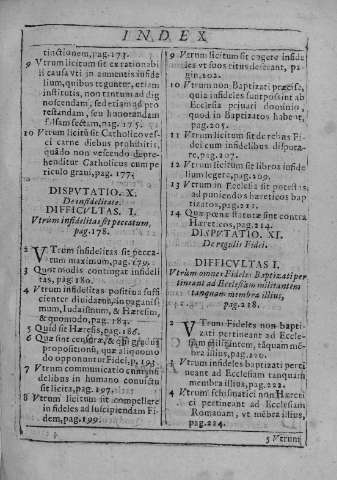 INDEX
tinctionem, pag. 173.
9 Vtrum licitum sit ex rationabi
li causa vti in aumentis infide
lium, quibus teguntur, etiam
institutis, non tantum ad dig
noscendam, sed etiam ad pro
testandam, seu honorandam
falsam sectam, pag. 175.
10 Vtrum licitũ sit Catholico ves-
ci carne diebus prohibitis,
quãdo non vescendo depre-
henditur Catholicus cum pe
riculo graui, pag. 177.
DISPVTATIO. X.
De infidelitate.
DIFFICVLTAS. I.
Vtrum infidelitas sit peccatum,
pag. 178.
2 VTrum infidelitas sit pecca-
tum maximum, pag. 179.
3 Quot modis contingat infideli
tas, pag 180.
4 Vtrum infidelitas positiua suffi
cienter diuidatur, in paganis
mum, Iudaismum, & Hæresim,
& quomodo, pag. 184.
5 Quid sit Hæresis, pag. 186.
6 Quæ sint censuræ, & qui gradus
propositionũ, quæ aliquo mo
do opponuntur Fidei, p. 193.
7 Vtrum communicatio cum infi
delibus in humano conuictu
sit licita, pag. 197.
8 Vtrum licitum sit compellere
infideles ad suscipiendam Fi
dem, pag. 199.
9 Vtrum licitum sit cogere infide
les vt suos ritus deserant, pa
gin. 202.
10 Vtrum non Baptizati præcise,
quia infideles sunt possint ab
Ecclesia priuari dominio,
quod in Baptizatos habent,
pag. 205.
11 Vtrum licitum sit de rebus Fi-
dei cum infidelibus disputa-
re, pag. 207.
12 Vtrum licitum sit libros infide
lium legere, pag. 209.
13 Vtrum in Ecclesia sit potestas,
ad puniendos hæreticos bap
tizatos, pag. 212.
14 Quæ pœnæ statutæ sint contra
Hæreticos, pag. 214.
DISPVTATIO. XI.
De regulis Fidei.
DIFFICVLTAS I.
Vtrum omnes Fideles Baptizati per
tineant ad Ecclesiam militantem
tanquam membra illius,
pag. 218.
2 VTrum Fideles non bapti-
zati pertineant ad Eccle-
siam militantem, tãquam mẽ-
bra illius, pag. 220.
3 Vtrum infideles baptizati perti
neant ad Ecclesiam tanquam
membra illius, pag. 222.
4 Vtrum schismatici non Hæreti
ci pertineant ad Ecclesiam
Romanam, vt mẽbra illius,
pag. 224.
5 Vtrum